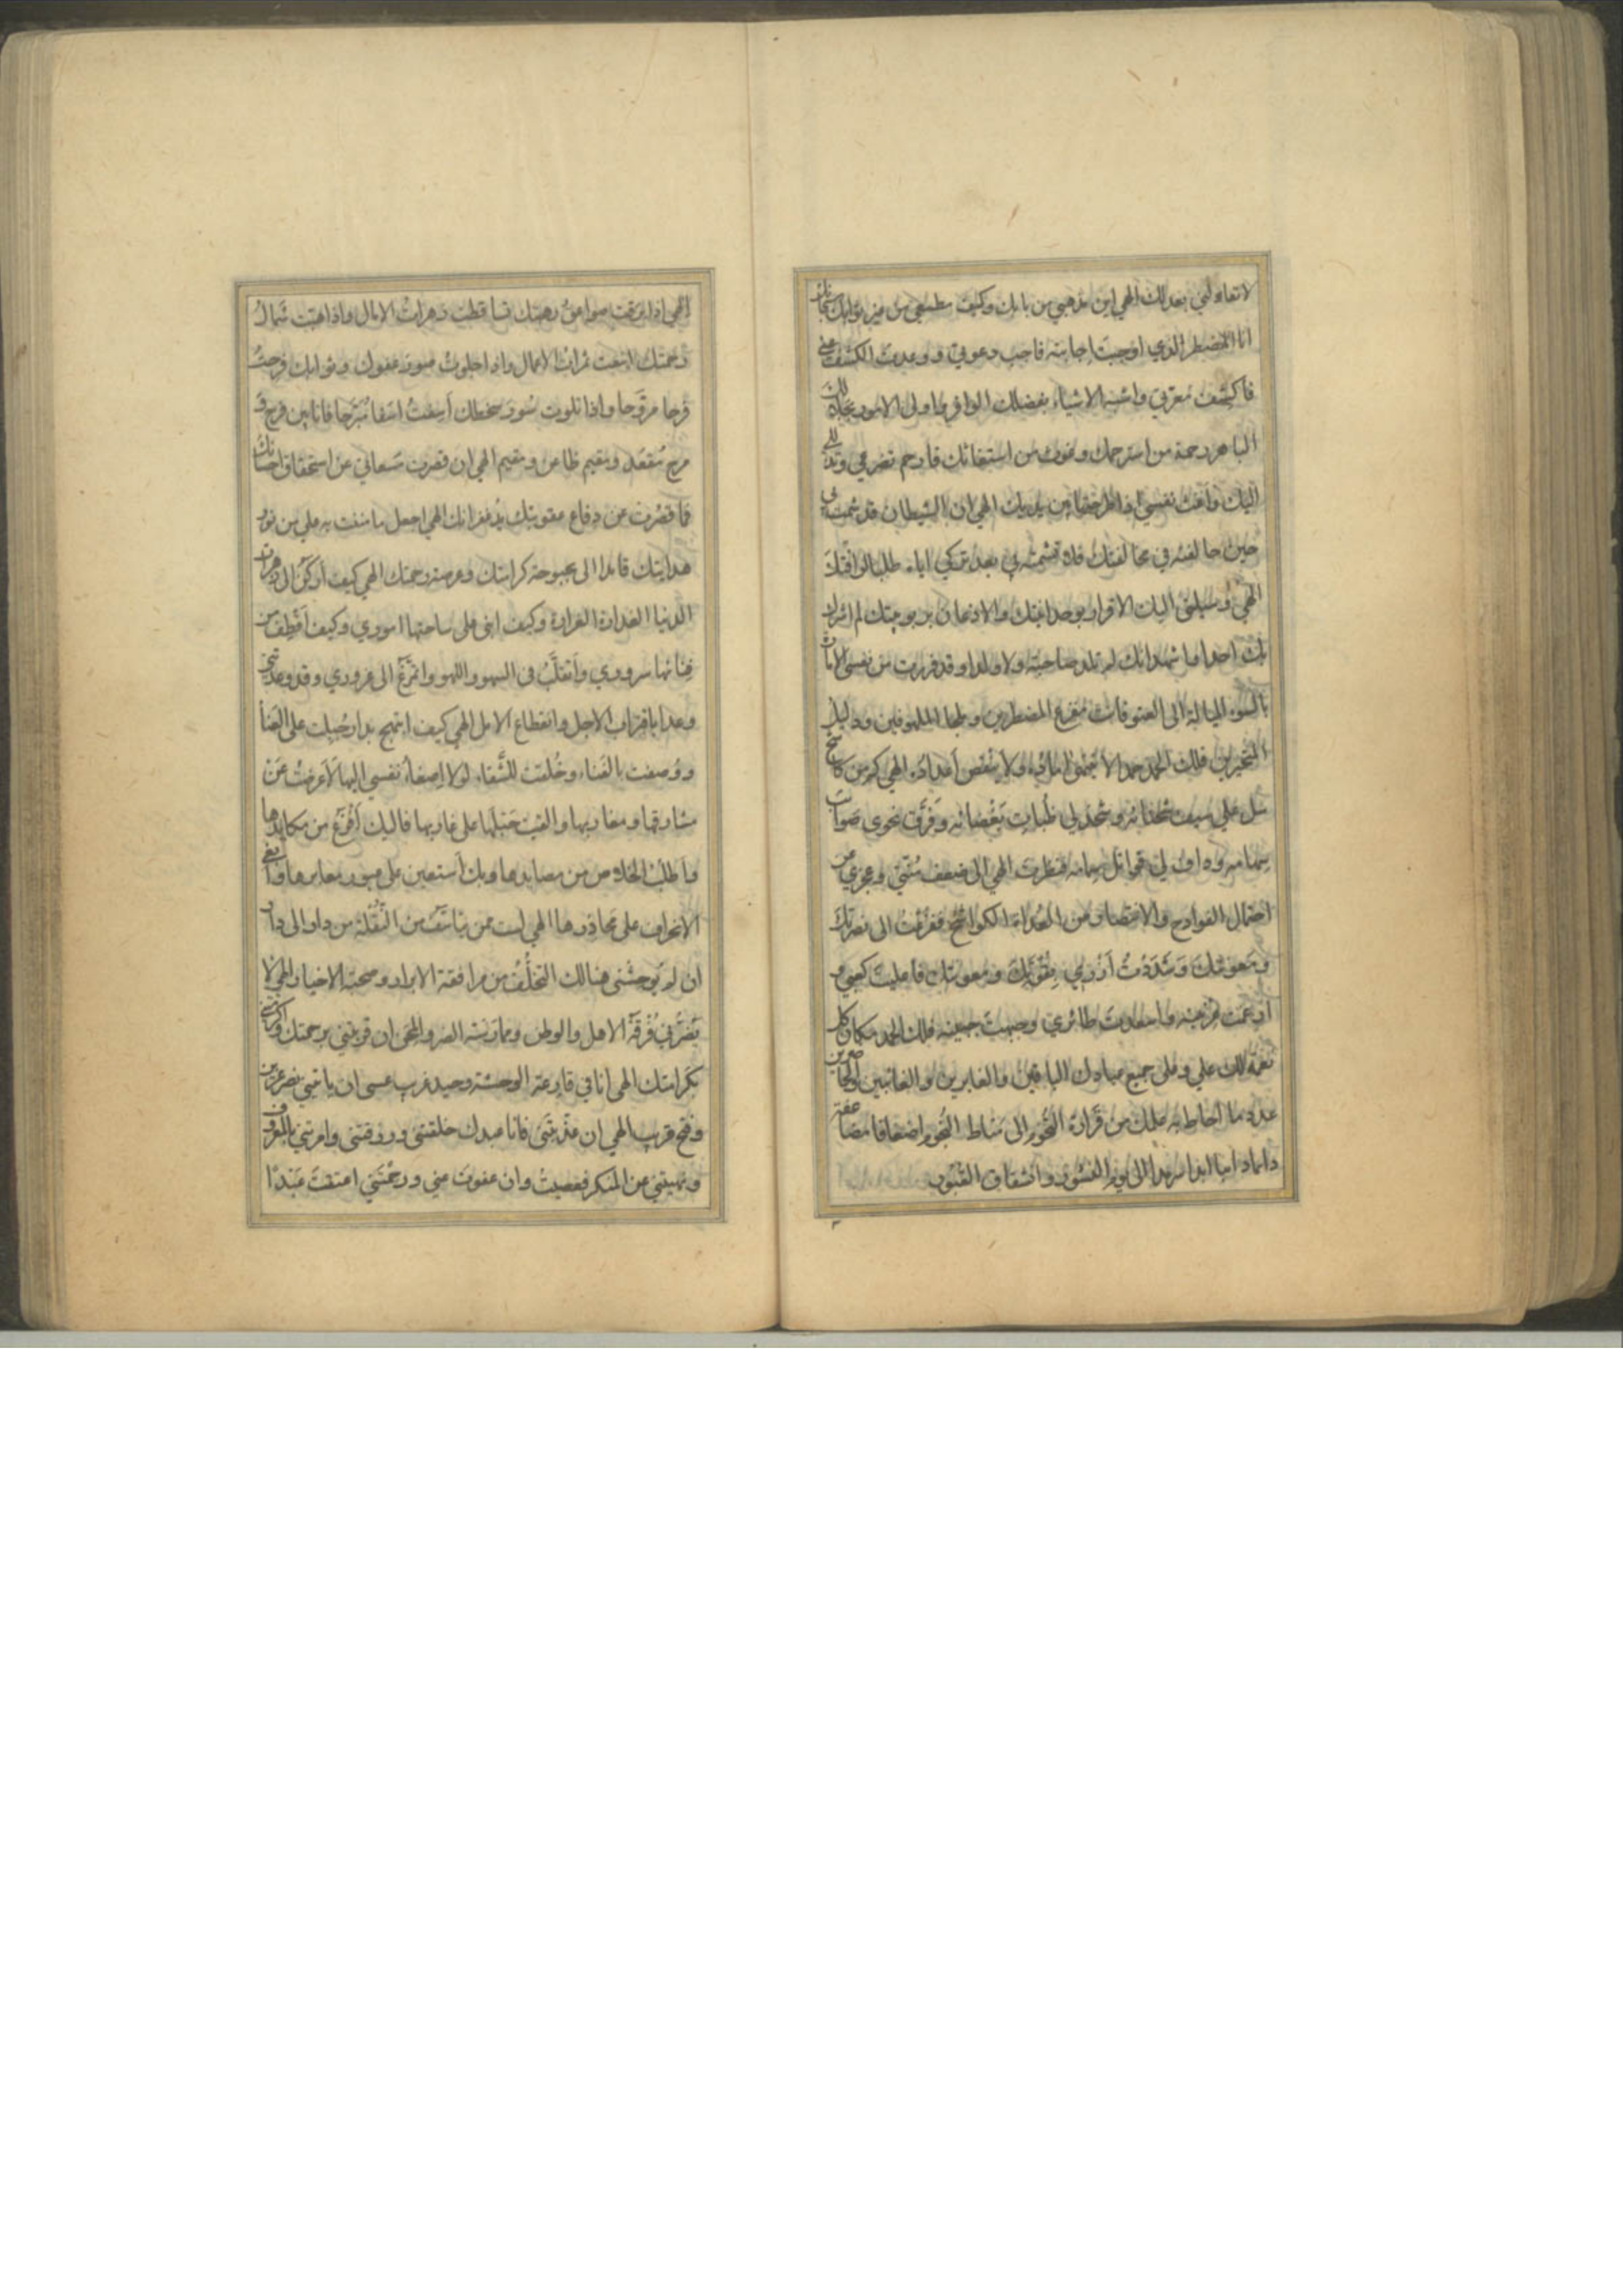 لا تعاولني بعد لك الهي اين مذهبي من بابك وكيف مطمعي من غير نوابك سبحانك
انا المضطر الذي اوجبت اجابته فاجب دعوتي ووعدت الكشف عني
فاكشف معرتي واشبه الاشياء بفضلك الوافر واولى الامور بجلالك
الباهر رحمة من استرحمك وغوث من استغاثك فارحم تضرعي وتذللي
اليك واغث نفسي اذ اطرحتها بين يديك الهي ان الشيطان قد شمت بي
حين حالفته في مخالفتك فلا تشمته بي بعد تركي اياه طلبا لموافقتك
الهي وسيلتي اليك الاقرار بوحدانيتك والاذعان بربوبيتك لم اشرك
بك احدا ما شهد انك لم تلد صاحبة ولا ولدا وقد فررت من نفسي الامارة
بالسوء الميالة الى العقوقات مفزع المضطرين وملجا الملهوفين ودليل
المتحيرين فلك الحمد حمدا لا يحصى امداده ولا ينقص اعداده الهي كم من كاشح
سل علي سيف شحنائه وشحذ لي ظبات بغضائه وفوق نحوي صوائب
سهامه وداف لي قواتل سمامه فنظرت الهي الى ضعف منتي وعجزي عن
احتمال الفوادح والانتصار من العداة الكواشح ففزعت الى نصرتك
ومعونتك وشددت ازري بقوتك ومعونتك فاعليت كعبي و
ارغمت عرنينه واسعدت طائري وجبهت جبينه فلك الحمد مكان كل
نعمة لك علي وعلى جميع عبادك الباقين والغابرين والغائبين والحاضرين
عدد ما احاط به علمك من قرارة البحور الى مناط النجوم اضعافا مضاعفة
دائما دائبا ابدا سرمدا الى يوم النشور وانشقاق القبور
الهي اذا برقت صواعق رهبتك تساقطت زهرات الامال واذا هبت شمال
رحمتك اينعت ثمرات الاعمال واذا جلوت صور عفوك وثوابك فرحت
فرحا مروحا واذا تلوت سور سخطك اسفت اسفا مبرحا فانا بين فرح و
مرح مقعد ومقيم ظاعن ومقيم الهي ان قصرت مسعاتي عن استحقاق احسانك
فما قصرت عن دفاع عقوبتك يد غفرانك الهي اجعل ما مننت به علي من نور
هدايتك قائدا الى بحبوحة كرامتك وعرصة رحمتك الهي كيف اركن الى زهرات
الدنيا الغدارة الغرارة وكيف ابني على ساحتها امودي وكيف اقطف من
فنائها سروري واتقلب في السهو واللهو واتمرغ الى غروري وقد وعدتني
وعدا باقتراب الاجل وانقطاع الامل الهي كيف ابتهج بدار جبلت على العناء
ووصفت بالفناء وخلقت للشقاء لولا اصغاء نفسي اليها لاعرضت عن
مشارقها ومغاربها والقيت حبلها على غاربها فاليك افزع من مكايدها
واطلب الخلاص من مصايدها وبك استعين على عبور معابرها وابغي
الانحراف على محاذيرها الهي لست ممن يتاسف من النقلة من دار الى دار
ان لم يوحشني هنالك التخلف من مرافقة الابرار وصحبة الاخيار الهي لا
يضرني فرقة الاهل والوطن وممارسة الضر والمحن ان قربتني برحمتك واكرمتني
بكرامتك الهي انا في قارعة الوحشة وحيد غريب عسى ان ياتيني نصر عزيز
وفتح قريب الهي ان عذبتني فانا عبدك خلقتني ورزقتني وامرتني بالمعروف
ونهيتني عن المنكر فعصيت وان عفوت عني ورحمتني اعتقت عبدا